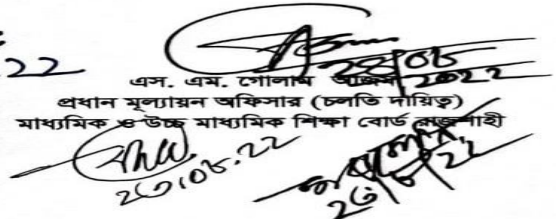 22
২৪/০৮/২০২২
এস. এম. গোলাম আজম
প্রধান মূল্যায়ন অফিসার (চলতি দায়িত্ব)
মাধ্যমিক ও উচ্চ মাধ্যমিক শিক্ষা বোর্ড রাজশাহী
২৩/০৮.২২
২৩/৮/২২